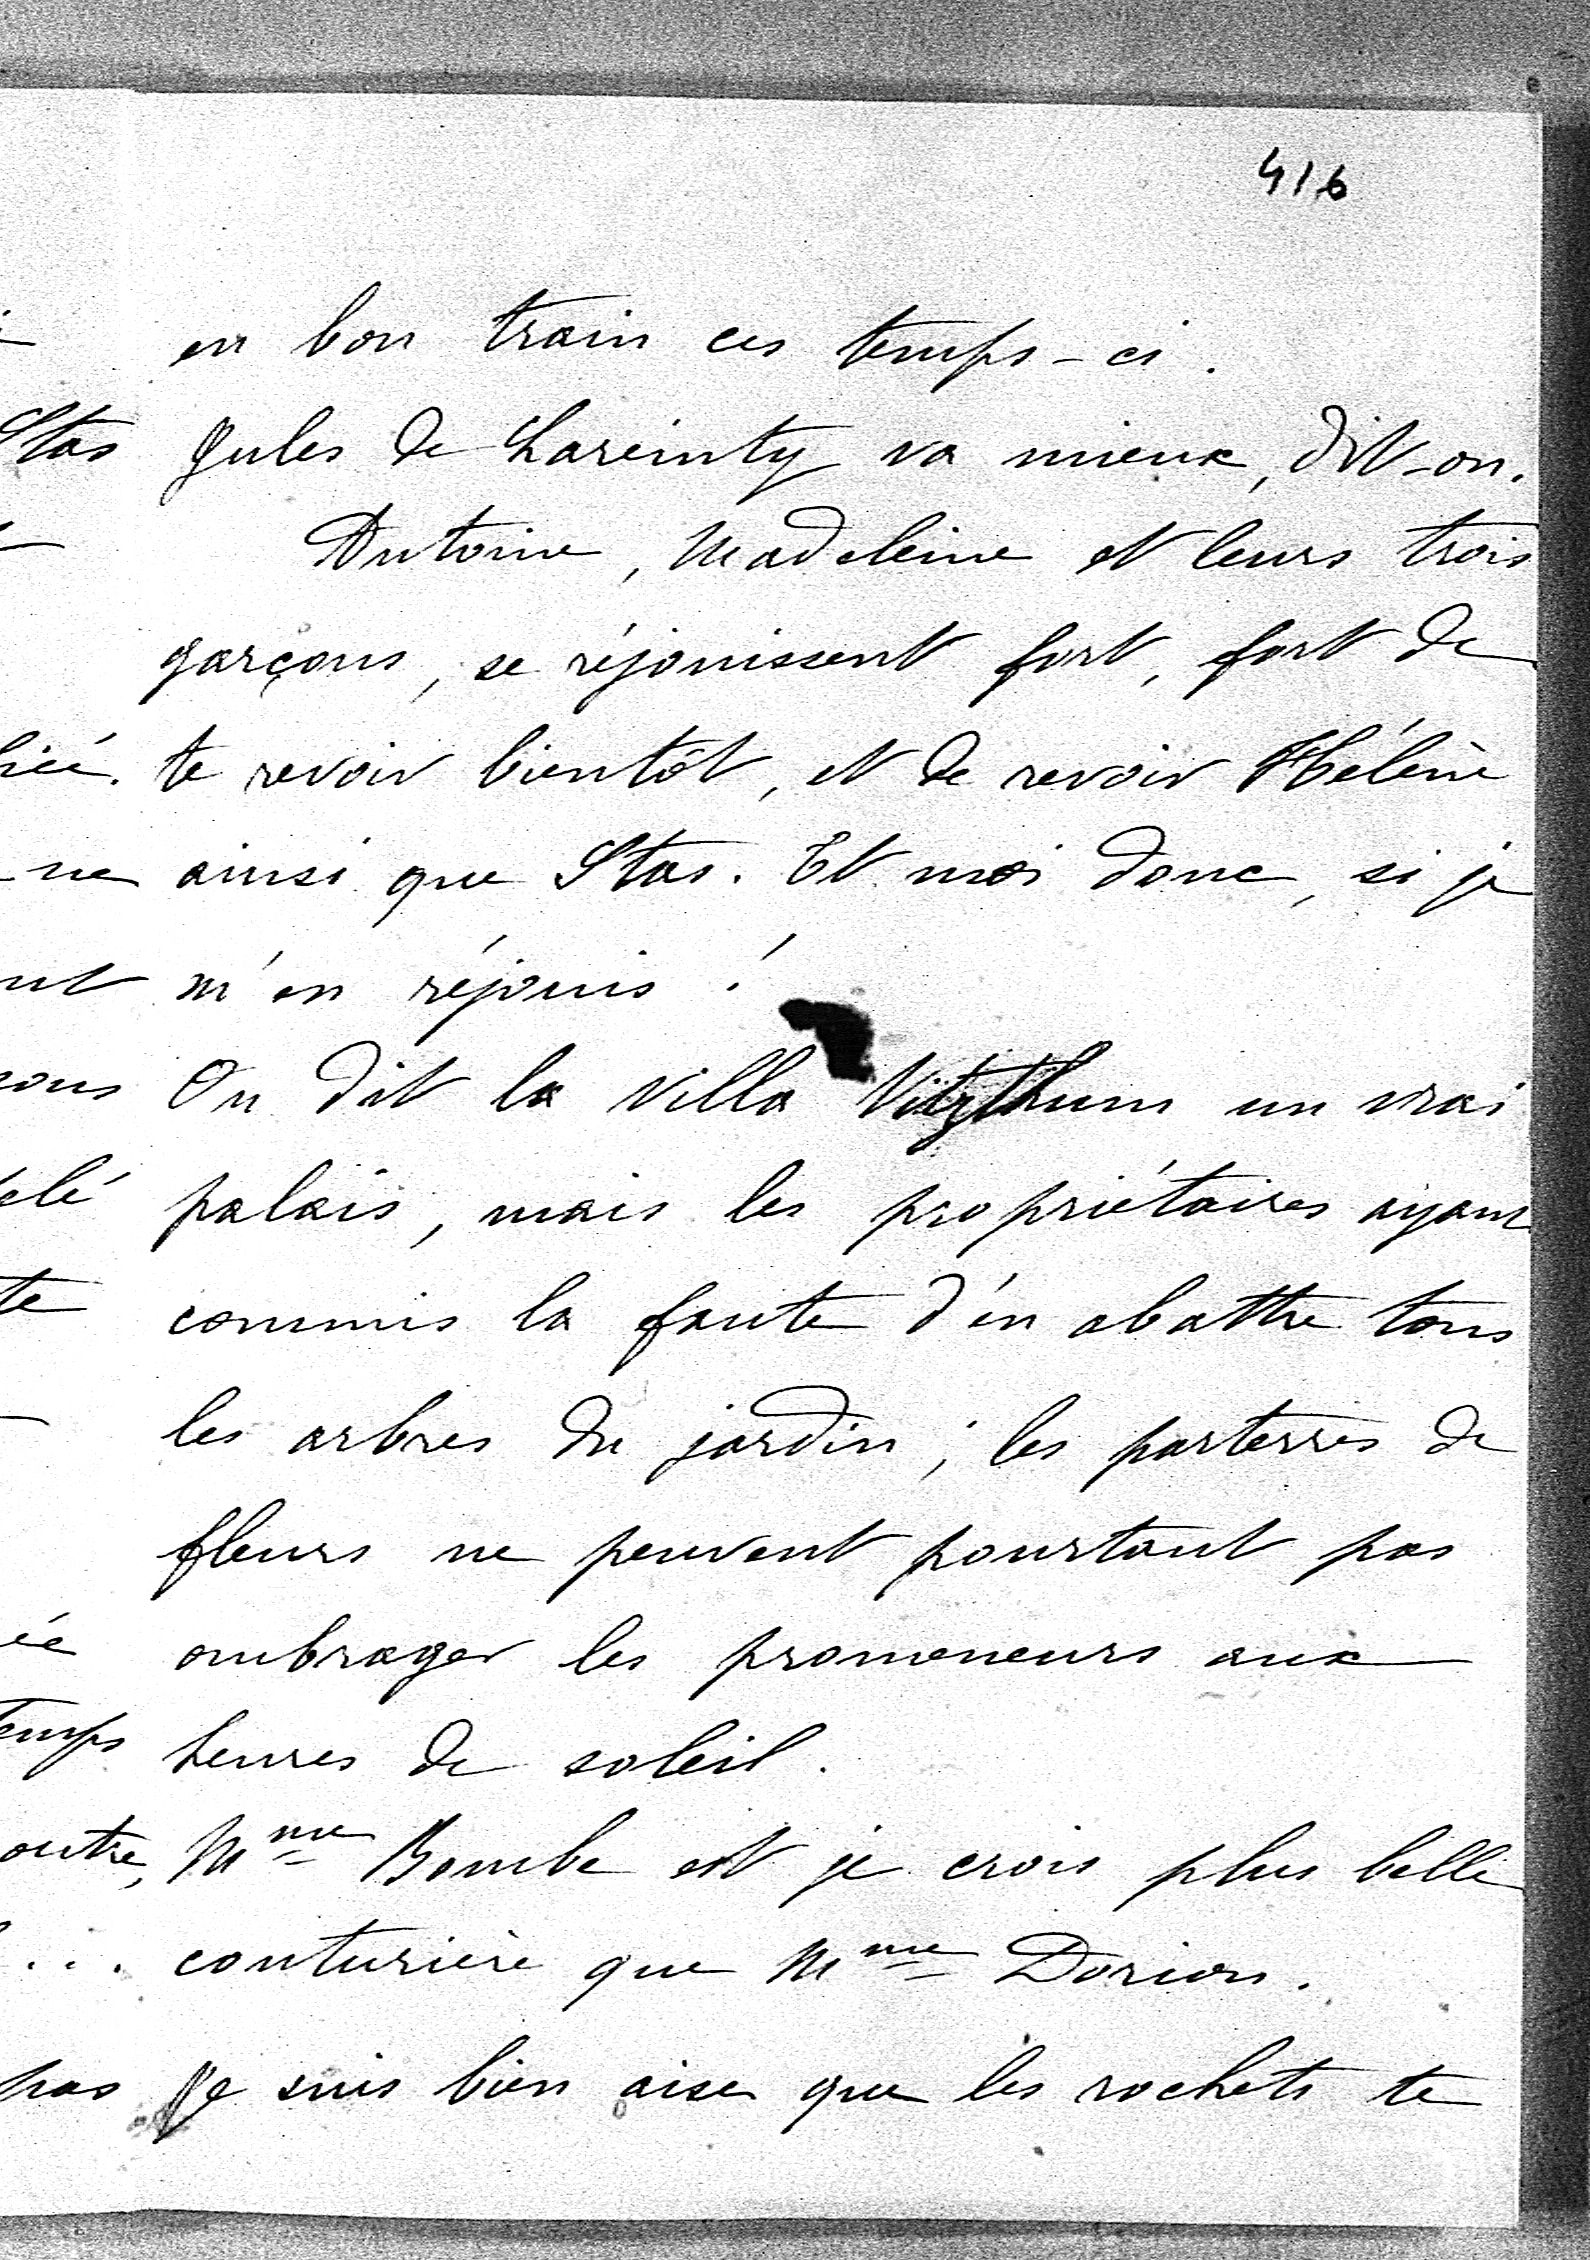 416
en bon train ces temps-ci.
Jules de Lareinty va mieux, dit-on.
Antoine, Madeleine et leurs trois
garçons, se réjouissent fort, fort de
te revoir bientôt, et de revoir Hélène
ainsi que Stas. Et moi donc, si je
m'en réjouis !
On dit la villa Vitzthum un vrai
palais, mais les propriétaires ayant
commis la faute d'en abattre tous
les arbres du jardin ; les parterres de
fleurs ne peuvent pourtant pas
ombrager les promeneurs aux
heures de soleil.
Mme Bombe est je crois plus belle
couturière que Mme Dorion.
Je suis bien aise que les rochets te
Stas
ne
te
temps
outre,
...
pas